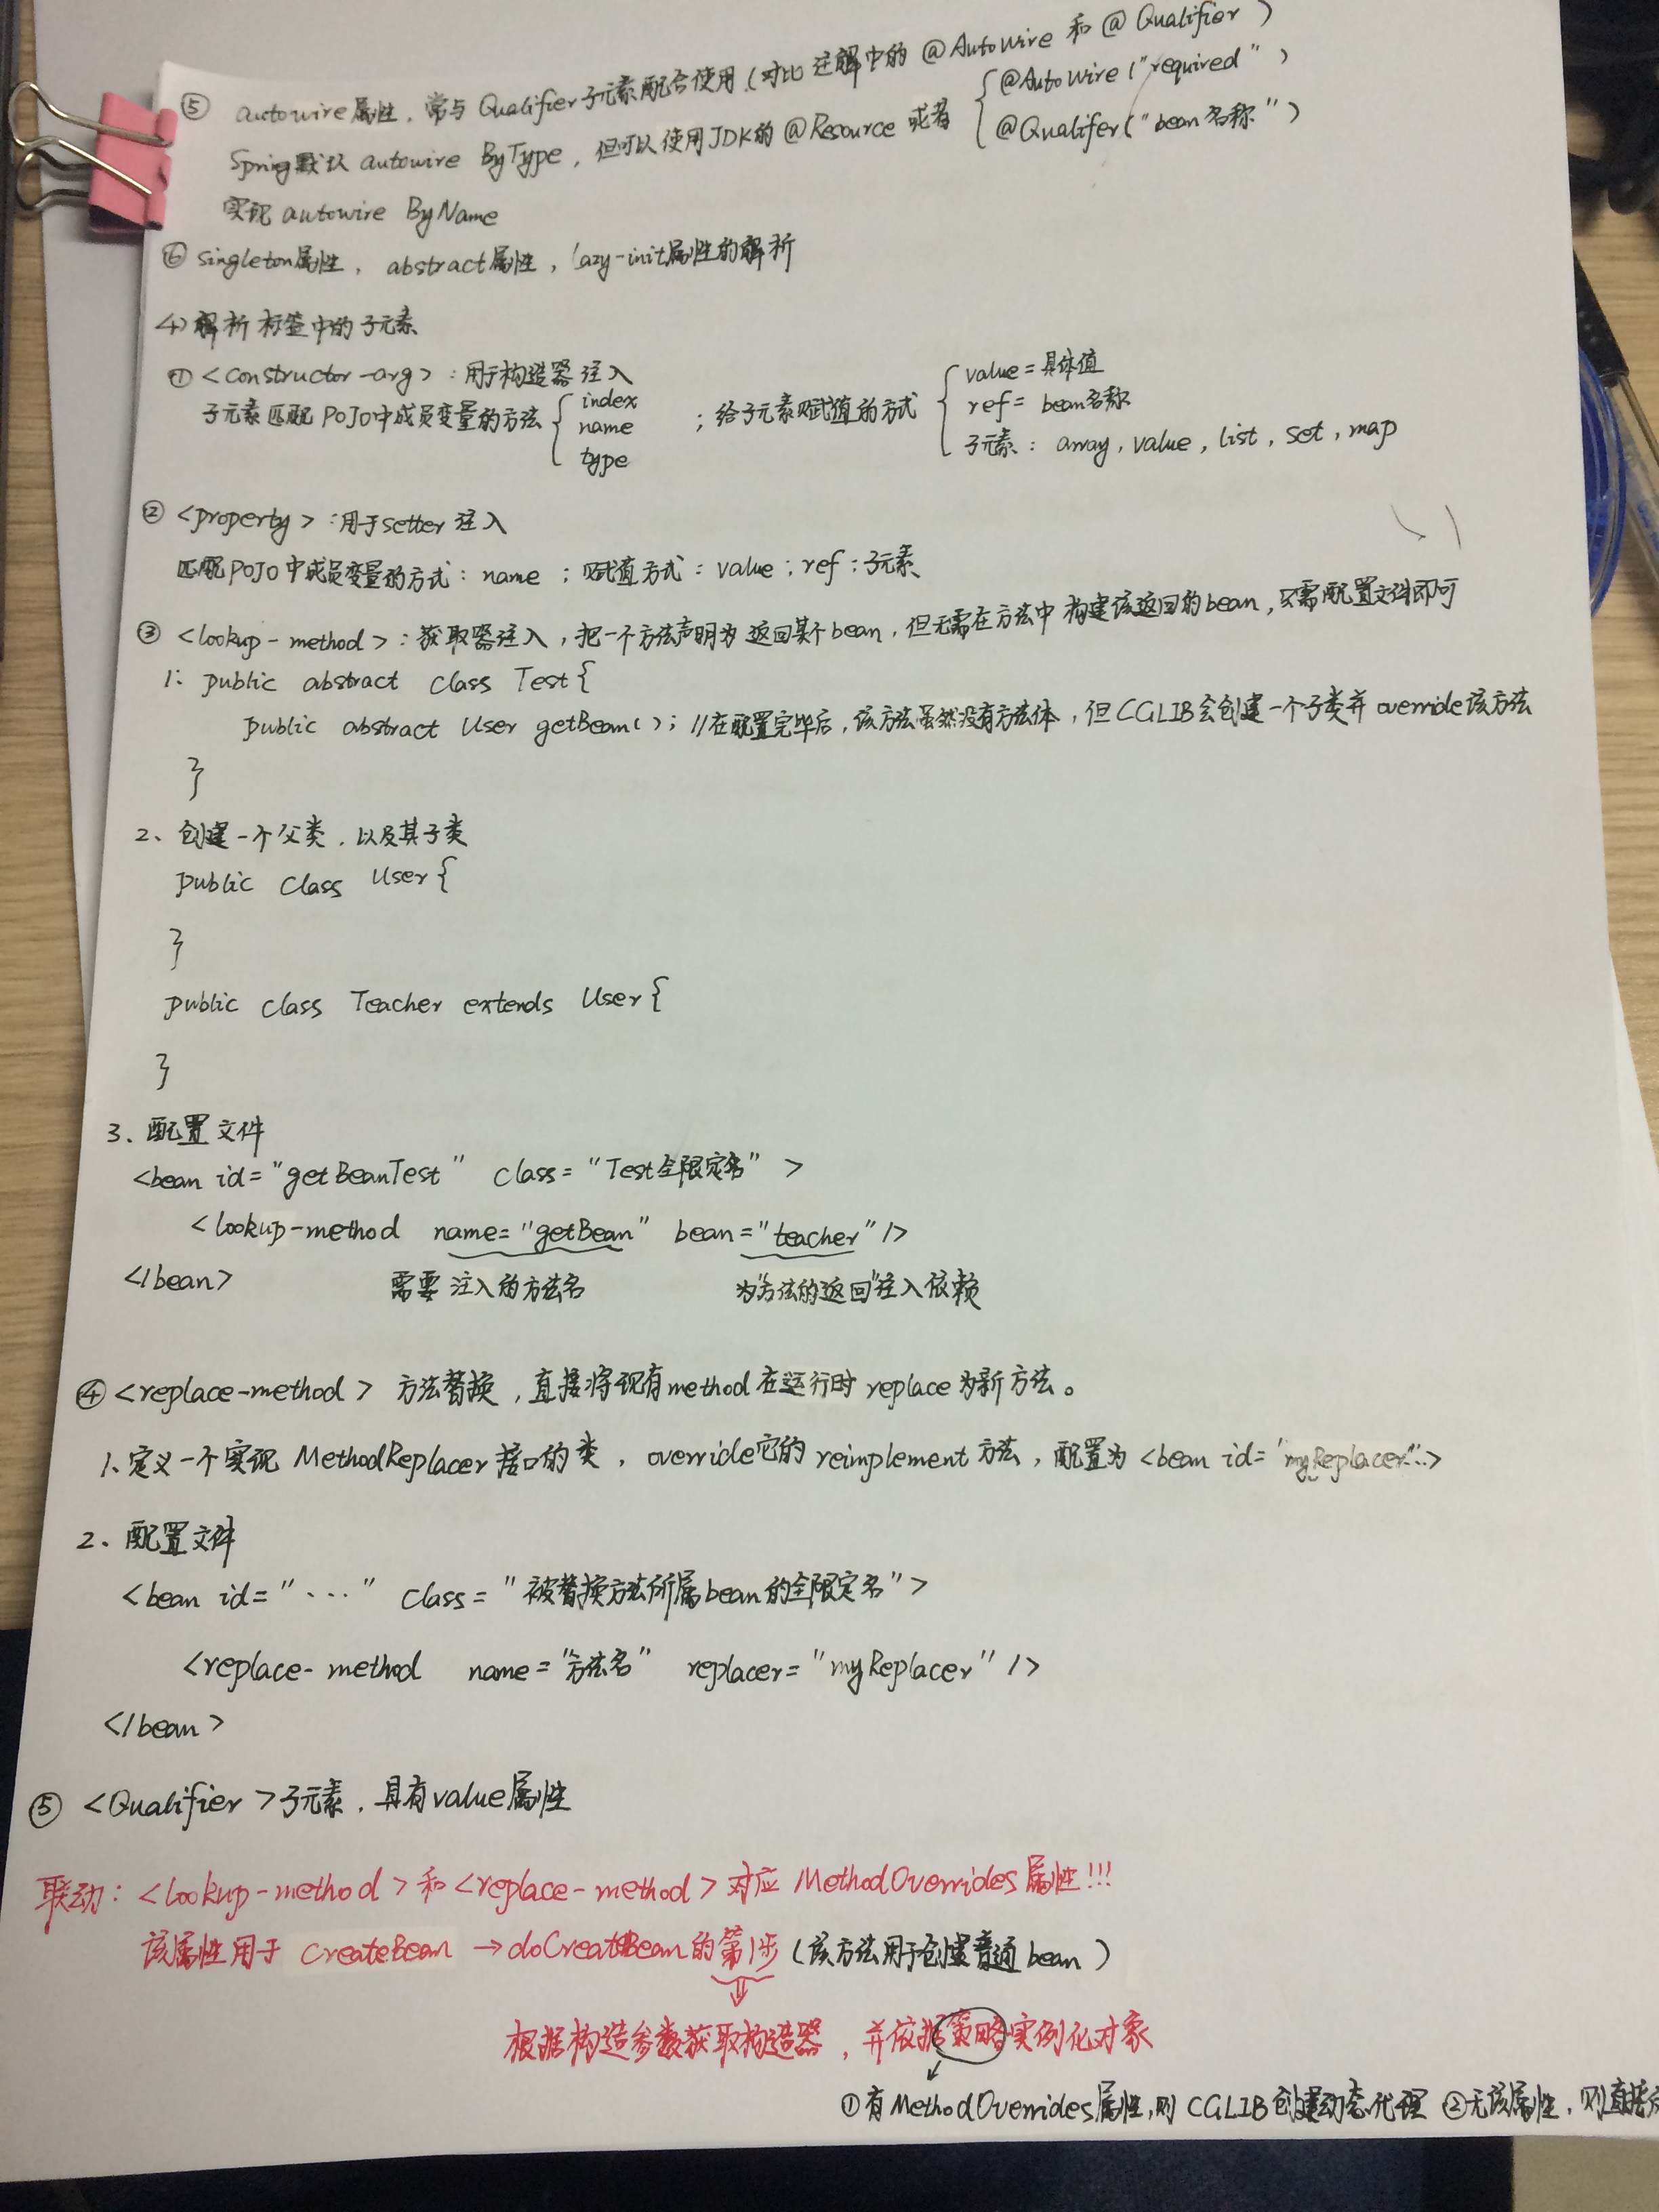 ⑤ autowire属性，常与Qualifier子元素配合使用（对比注解中的@AutoWire 和 @Qualifier）
Spring默认 autowire ByType，但可以使用JDK的@Resource 或者 { @AutoWire("required")
@Qualifer("bean名称")
实现 autowire ByName
⑥ singleton属性，abstract属性，lazy-init属性的解析
4) 解析标签中的子元素
① <constructor-arg>：用于构造器注入
子元素匹配POJO中成员变量的方法 { index
name
type
；给子元素赋值的方式 { value=具体值
ref= bean名称
子元素：array，value，list，set，map
② <property>：用于setter注入
匹配POJO中成员变量的方式：name；赋值方式：value；ref；子元素
③ <lookup-method>：获取器注入，把一个方法声明为返回某个bean，但无需在方法中构建该返回的bean，只需配置文件即可
1: public abstract class Test{
public abstract User getBean(); //在配置完毕后，该方法虽然没有方法体，但CGLIB会创建一个子类并override该方法
}
2、创建一个父类，以及其子类
public class User{
}
public class Teacher extends User{
}
3、配置文件
<bean id="getBeanTest" class="Test全限定名">
<lookup-method name="getBean" bean="teacher"/>
</bean> 需要注入的方法名 为"方法的返回"注入依赖
④ <replace-method> 方法替换，直接将现有method在运行时replace为新方法。
1、定义一个实现MethodReplacer接口的类，override它的reimplement方法，配置为<bean id="myReplacer"...>
2、配置文件
<bean id="..." class="被替换方法所属bean的全限定名">
<replace-method name="方法名" replacer="myReplacer"/>
</bean>
⑤ <Qualifier>子元素，具有value属性
联动：<lookup-method>和<replace-method>对应MethodOverrides属性!!!
该属性用于 createBean →doCreateBean的第1步（该方法用于创建普通bean）
⇓
根据构造参数获取构造器，并依据策略实例化对象
①有MethodOverrides属性，则CGLIB创建动态代理 ②无该属性，则直接